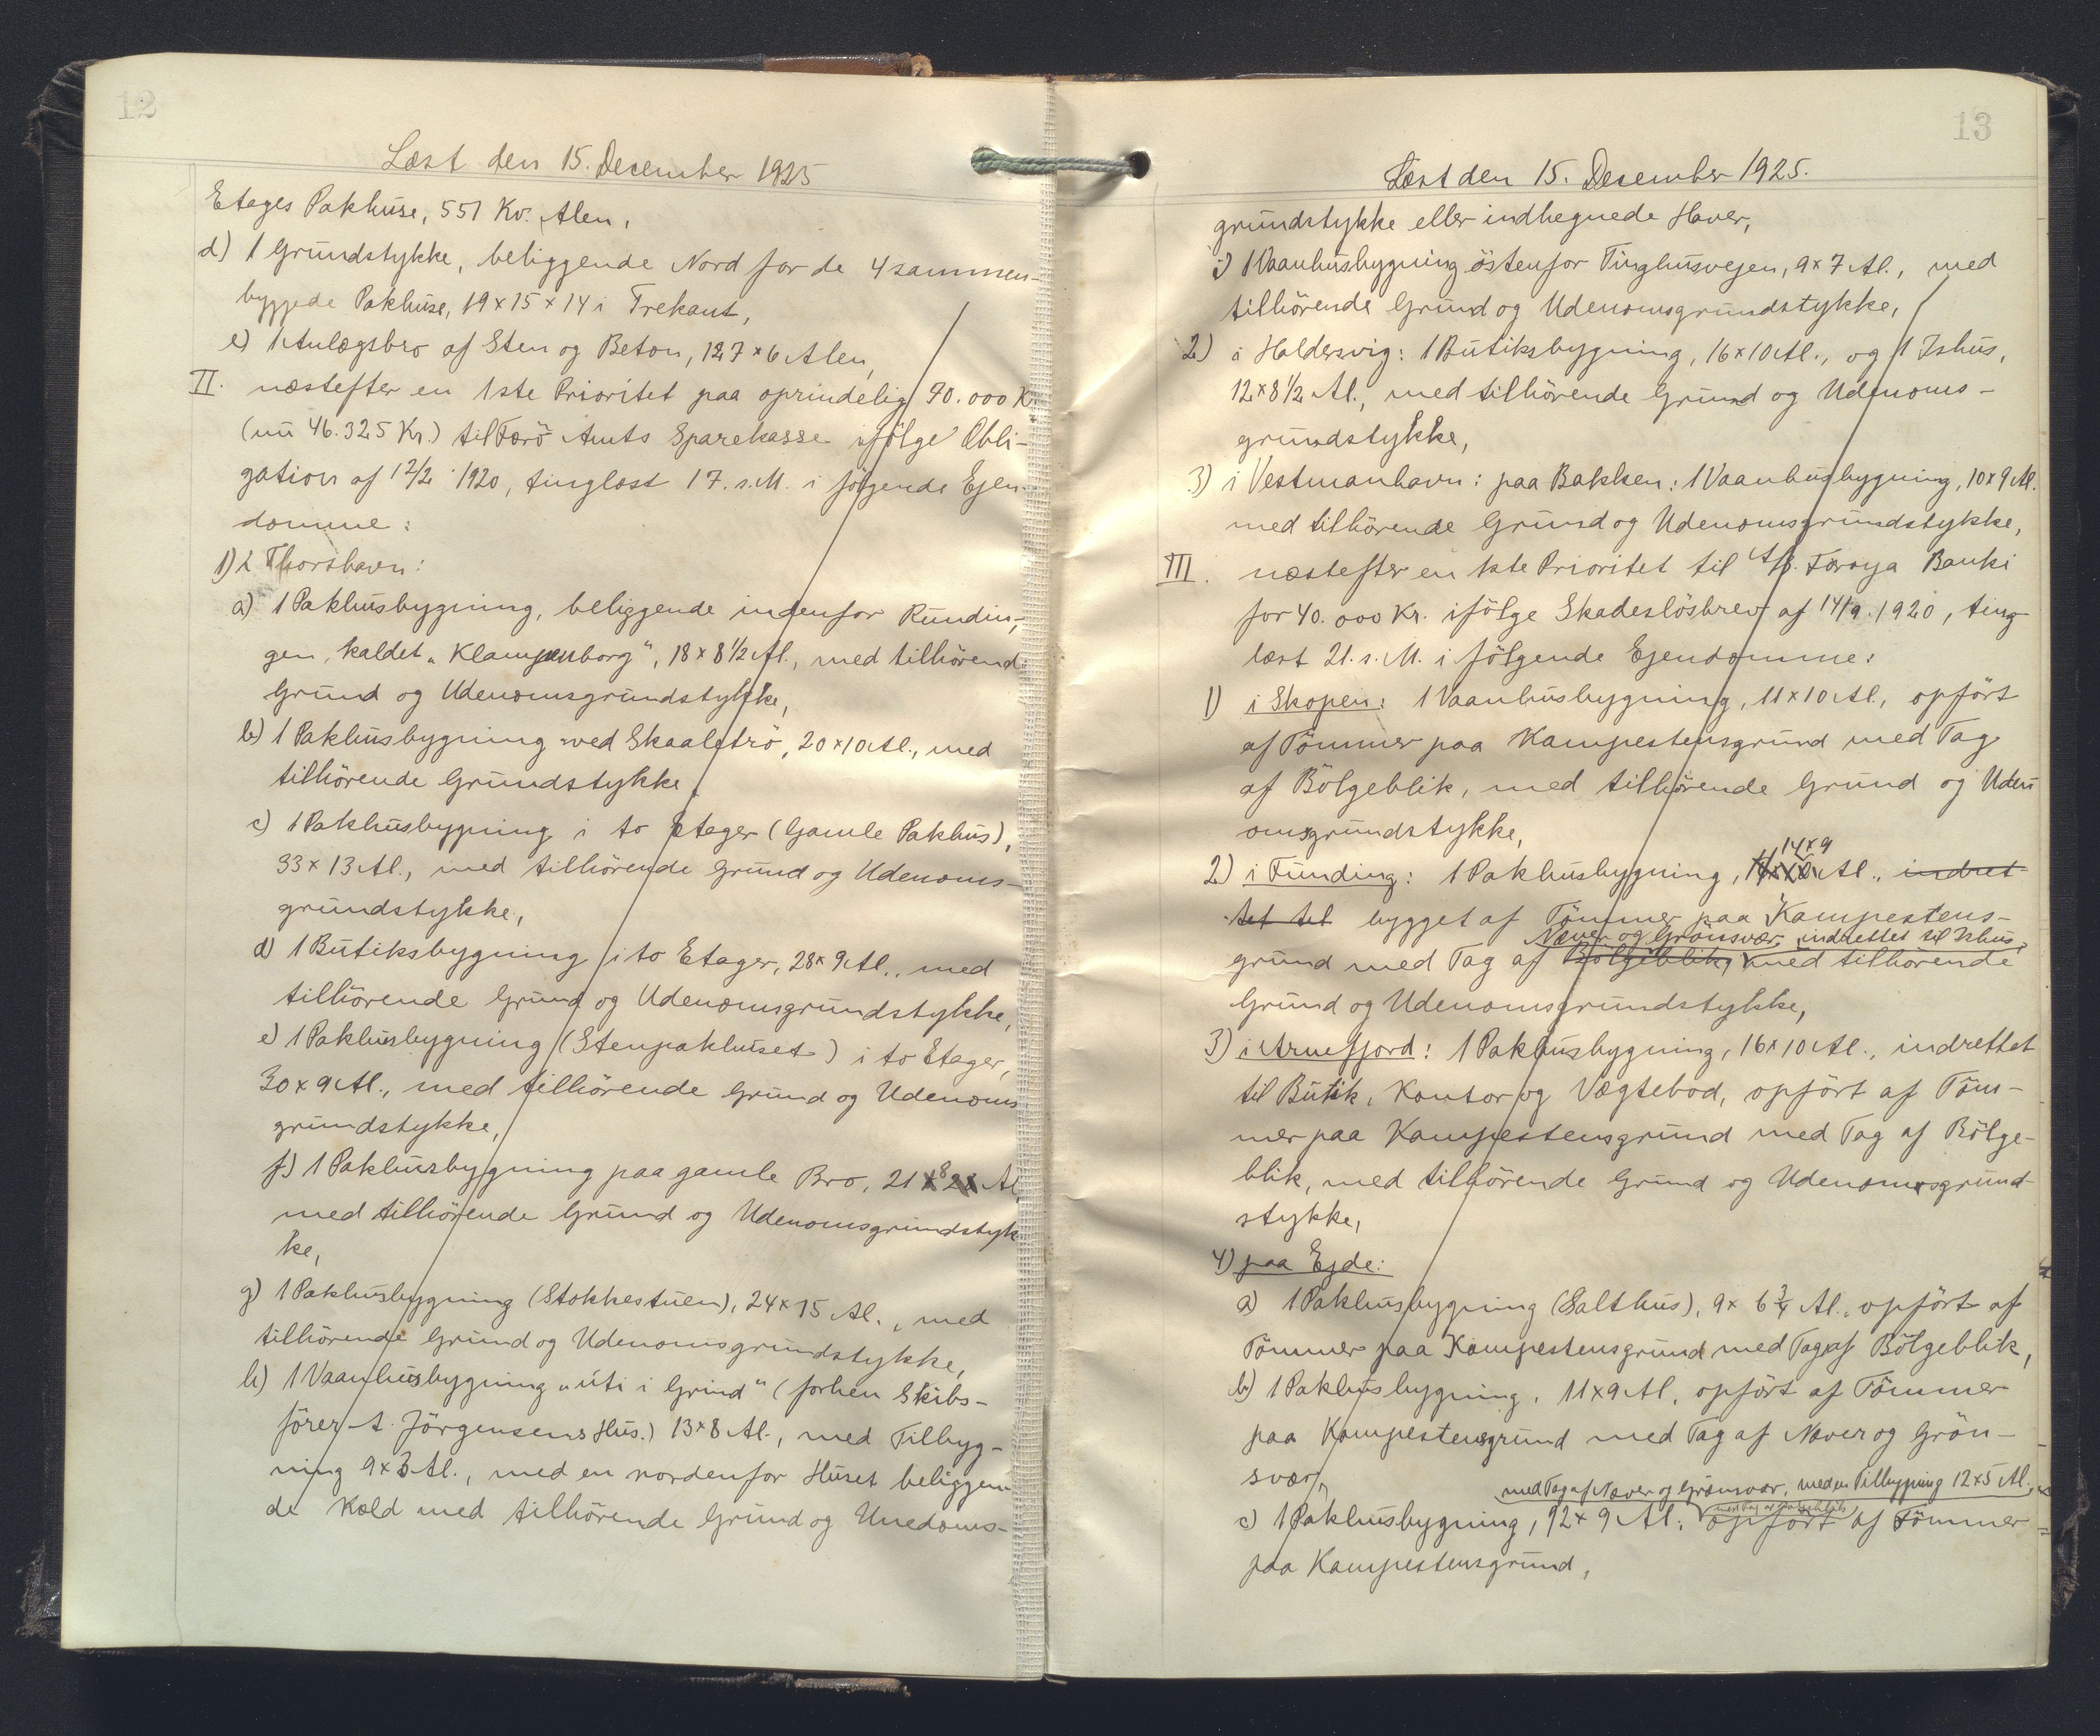 12
Læst den 15. December 1925
Etages Pakhuse, 551 Kv. Alen,
d) 1 Grundstykke, beliggende Nord for de 4 sammen-
byggede Pakhuse, 19 x 15 x 14 i Trekant,
e) 1 Anlægsbro af Sten og Beton, 127 x 6 Alen,
II. næstefter en 1ste Prioritet paa oprindelig 90.000 Kr.
(nu 46.325 Kr.) til Færö Amts Sparekasse ifölge Obli-
gation af 12/2 1920, tinglæst 17. s. M. i fölgende Ejen-
domme:
1) i Thorshavn:
a) 1 Pakhusbygning, beliggende indenfor Rundin-
gen, kaldet „Klampenborg“, 18 x 8 1/2 Al., med tilhörende
Grund og Udenomsgrundstykke,
b) 1 Pakhusbygning ved Skaaletrö, 20 x 10 Al., med
tilhörende Grundstykke,
c) 1 Pakhusbygning i to Etager (Gamle Pakhus),
33 x 13 Al., med tilhörende Grund og Udenoms-
grundstykke,
d) 1 Butiksbygning i to Etager, 28 x 9 Al., med
tilhörende Grund og Udenomsgrundstykke,
e) 1 Pakhusbygning (Stenpakhuset) i to Etager,
30 x 9 Al., med tilhörende Grund og Udenoms
grundstykke,
f) 1 Pakhusbygning paa gamle Bro, 21 x 8 Al.
med tilhörende Grund og Udenomsgrundstyk
ke,
g) 1 Pakhusbygning (Stokkestuen), 24 x 15 Al., med
tilhörende Grund og Udenomsgrundstykke,
h) 1 Vaanhusbygning „úti i Grind“ (forhen Skibs-
förer A. Jörgensens Hus.) 13 x 8 Al., med Tilbyg-
ning 9 x 3 Al., med en nordenfor Huset beliggen
de Kæld med tilhörende Grund og Unedoms-
13
Læst den 15. Desember 1925.
grundstykke eller indhegnede Haver,
i) 1 Vaanhusbygning östenfor Tinghusvejen, 9 x 7 Al., med
tilhörende Grund og Udenomsgrundstykke,
2) i Haldersvig: 1 Butiksbygning, 16 x 10 Al., og 1 Ishus,
12 x 8 1/2 Al., med tilhörende Grund og Udenoms-
grundstykke,
3) i Vestmanhavn: paa Bakken: 1 Vaanhusbygning, 10 x 9 Al.
med tilhörende Grund og Udenomsgrundstykke,
III. næstefter en 1ste Prioritet til A/S. Föroya Banki
for 40.000 Kr. ifölge Skadeslösbrev af 14/9. 1920, ting
læst 21. s. M. i fölgende Ejendomme:
1) i Skopen: 1 Vaanhusbygning, 11 x 10 Al., opfört
af Tömmer paa Kampestensgrund med Tag
af Bölgeblik, med tilhörende Grund og Uden
omsgrundstykke,
14 x 9
2) i Funding: 1 Pakhusbygning, Al., indret-
tet til bygget af Tömmer paa Kampestens-
Næver og Grönsvær, indrettet til Ishus,
grund med Tag af Bölgeblik, med tilhörende
Grund og Udenomsgrundstykke,
3) i Arnefjord: 1 Pakhusbygning, 16 x 10 Al., indrettet
til Butik, Kontor og Vægtebod, opfört af Töm-
mer paa Kampestensgrund med Tag af Bölge-
blik, med tilhörende Grund og Udenomsgrund-
stykke,
4) paa Ejde:
a) 1 Pakhusbygning (Salthus), 9 x 6 3/4 Al., opfört af
Tömmer paa Kampestensgrund med Tag af Bölgeblik,
b) 1 Pakhusbygning, 11 x 9 Al, opfört af Tömmer
paa Kampestensgrund med Tag af Næver og Grön-
svær,
med Tag af Næver og Grönsvær, med en Tilbygning 12 x 5 Al.,
med Tag af Bölgeblik
c) 1 Pakhusbygning, 12 x 9 Al., opfört af Tömmer
paa Kampestensgrund,